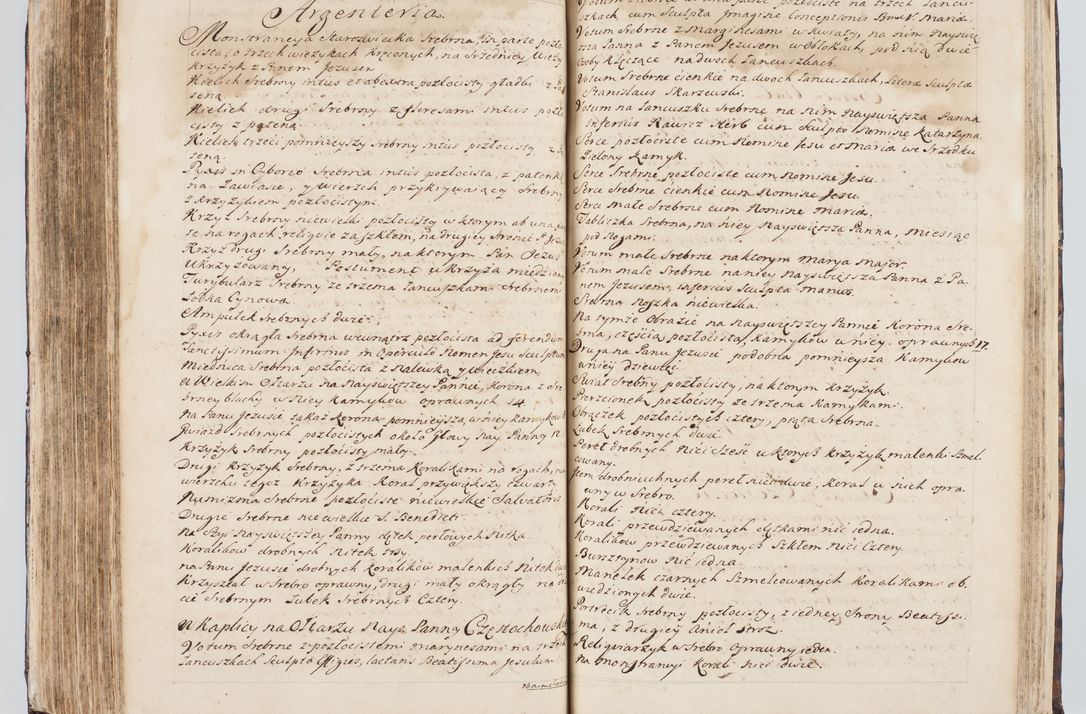 Argenteria.
Monstrancya Staroswiecka Srebrna, in parte pozło
cista, o trzech wiezykach kręconych, na Srzedniey Wiezy
krzyżyk z Panem Jezusem
Kielich Srebrny intus et ab extra pozłocisty gładki z
teną.
Kielich drugi Srebrny z floresami intus pozło
cisty z pateną.
Kielich trzeci pomnieyszy srebrny intus pozłocisty z
teną.
Pyxis in Cyborio Srebrna intus pozłocista, z patenk
na zawiasie, y wierzch przykrywaiącą Srebrny
z krzyżykiem pozłocistym.
Krzyż Srebrny niewielki pozłocisty w ktorym ab una
se na rogach religuie za szkłem, na drugiey Stronie P. Jezus
Krzyż drugi Srebrny mały, na ktorym Pan Jezus
Ukrzyżowany, Postument u krzyża miedzian
Turybularz Srebrny ze trzema łancuszkami Srebrnemi
Łodka Cynowa.
Ampułek Srebrnych dwie.
Pyxis okrągła Srebrna wewnątrz pozłocista ad ferendum
Sanctissimum Infirmis in operculo Nomen Jesu Sculptum
Miednica Srebrna pozłocista z Nalewką y wieczkiem
W Wielkim Ołtarzu na Nayswiętszey Pannie, Korona z Sre
brney blachy w Niey kamykow oprawnych 14.
Na Panu Jezusie takaż Korona pomnieysza, w niey kamykow
Gwiazd Srebrnych pozłocistych około głowy Nay. Panny 12
Krzyżyk Srebrny pozłocisty mały.
Drugi krzyżyk Srebrny, z trzema Koralikami na rogach, na
wierzchu tegoż krzyżyka Koral przywiększy czwarty
Numizma Srebrne pozłociste niewielkie Salvatoris
Drugie Srebrne niewielkie S. Benedicti
Na Szyi Nayswiętszey Panny dętek perłowych Nitka.
Koralikow drobnych Nitek trzy.
Na Panu Jezusie drobnych koralikow malenkich Nitek dwie
Krzyształ w Srebro oprawny, drugi mały okrągły na
cie Srebrnym Zubek Srebrnych Cztery.
W Kaplicy na Ołtarzu Nays. Panny Częstochowskiey
Votum Srebrne z pozłocistemi marynesami na trzech
Łancuszkach Sculpta Effigies, lactans Beatissima Jesulum
szkach cum Sculpta Imagine Conceptionis Bmæ V. Mariæ.
Votum Srebrne z marginesami w kwiaty, na nim Nayswię
tsza Panna z Panem Jezusem w Obłokach, pod nią dwie
Osoby klęczące na dwoch łancuszkach.
Votum Srebrne cienkie na dwoch łancuszkach, Litera Sculpta
Stanislaus Skarzewski.
Votum na łancuszku Srebrne na nim Nayswiętsza Panna
inferius Kawicz Herb cum Sculpto Nomine Katarzyna.
Serce pozłociste cum Nomine Jesu et Mariæ we Srzodku
Zielony kamyk.
Serce Srebrne pozłociste cum Nomine Jesu.
Serce Srebrne cienkie cum Nomine Jesu.
Serce małe Srebrne cum Nomine Mariæ.
Tabliczka Srebrna, na niey Nayswiętsza Panna, miesiąc
pod Nogami.
Votum małe Srebrne na ktorym Marya Major.
Votum małe Srebrne na niey Nayswiętsza Panna z Pa
nem Jezusem, inferius Sculpta manus.
Srebrna Noszka niewielka.
Na tymże Obrazie na Nayswiętszey Pannie Korona Sre
brna, częścią pozłocista, kamykow w niey oprawnych 17.
Druga na Panu Jezusie podobna pomnieysza Kamykow
w niey dziewięć.
Swiat Srebrny pozłocisty, na ktorym krzyżyk.
Pierzcionek pozłocisty ze trzema kamykami.
Obrączek pozłocistych cztery, piąta Srebrna.
Zubek Srebrnych dwie.
Pereł drobnych Nici Sześć u ktorych krzyżyk malenki Szmel
cowany.
Item drobniuchnych pereł nici dwie, koral u nich opra
wny w Srebro.
Korali Nici cztery.
Korali przewdziewanych dętkami nic iedna.
Koralikow przewdziewanych Szkłem Nici Cztery.
Bursztynow nic iedna.
Manelek czarnych Szmelcowanych Koralikami ob
wiedzionych dwie.
Portrecik Srebrny pozłocisty, z iedney Strony Beatissi
ma, z drugiey Anioł Stroz.
Religwiarzyk w Srebro oprawny ieden.
Na Monstrancyi korali nici dwie.